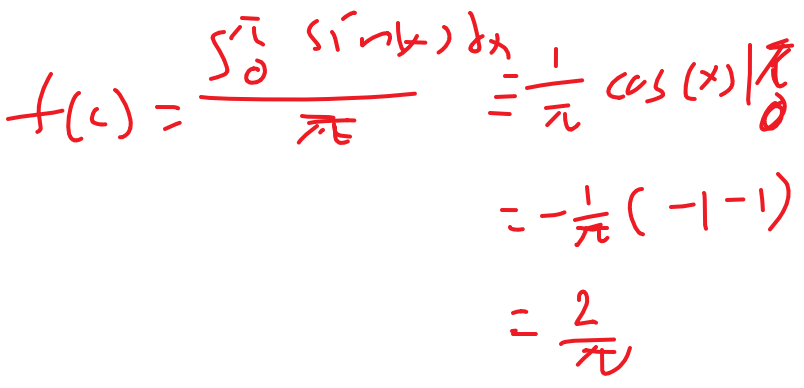 f(c) = \frac{\int_0^π sin(x) dx}{π} = \frac{1}{π} cos(x) |_0^π
= -\frac{1}{π} ( -1 - 1 )
= \frac{2}{π}